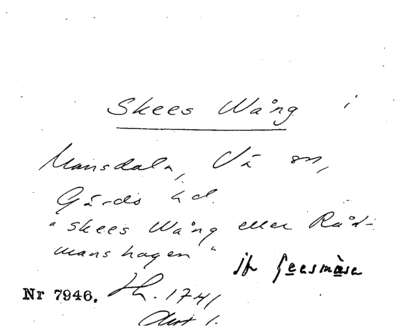 Skees Wång i
Mansdala, Vä sn,
Gärds hd.
"Skees Wång eller Råd-
manshagen"
jfr Geesmåsa
Nr 7946. Lh. 1741
Akt 1.